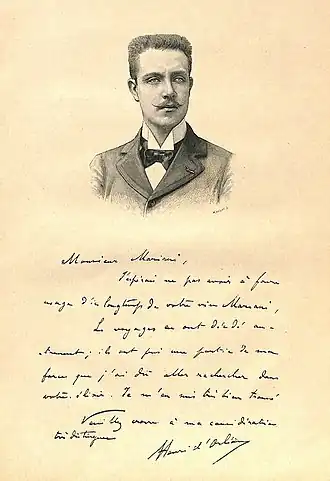 Monsieur Mariani,
J'espérais ne pas avoir à faire
usage d'ici longtemps de votre vin Mariani,
Les voyages en ont décidé au-
trement; ils ont pris une partie de ma
force que j'ai dû aller rechercher dans
votre élixir. Je m'en suis très bien trouvé
Veuillez croire à ma considération
très distinguée
Henri d'Orléans